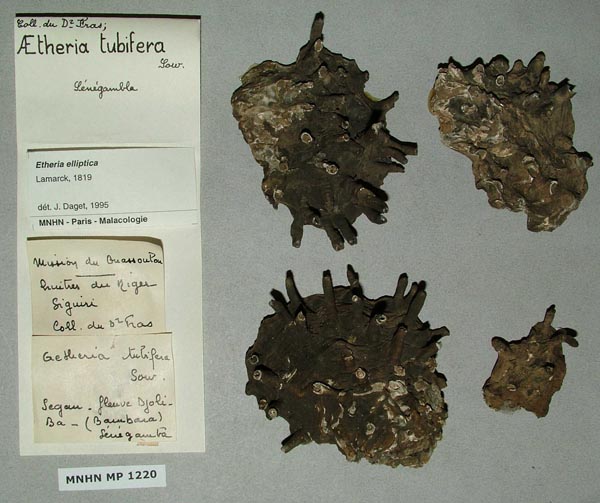 Coll. du Dr Fras;
Ætheria tubifera
Sow.
Sénégambla
Etheria elliptica
Lamarck, 1819
dét. J. Daget, 1995
MNHN - Paris - Malacologie
Mission du Ouassoulou
huîtres du Niger
Siguiri
Coll. du Dr Fras
Aetheria tubifera
Sow.
Segou - fleuve Djoli-
Ba - (Bambara)
Sénégambla
MNHN MP 1220